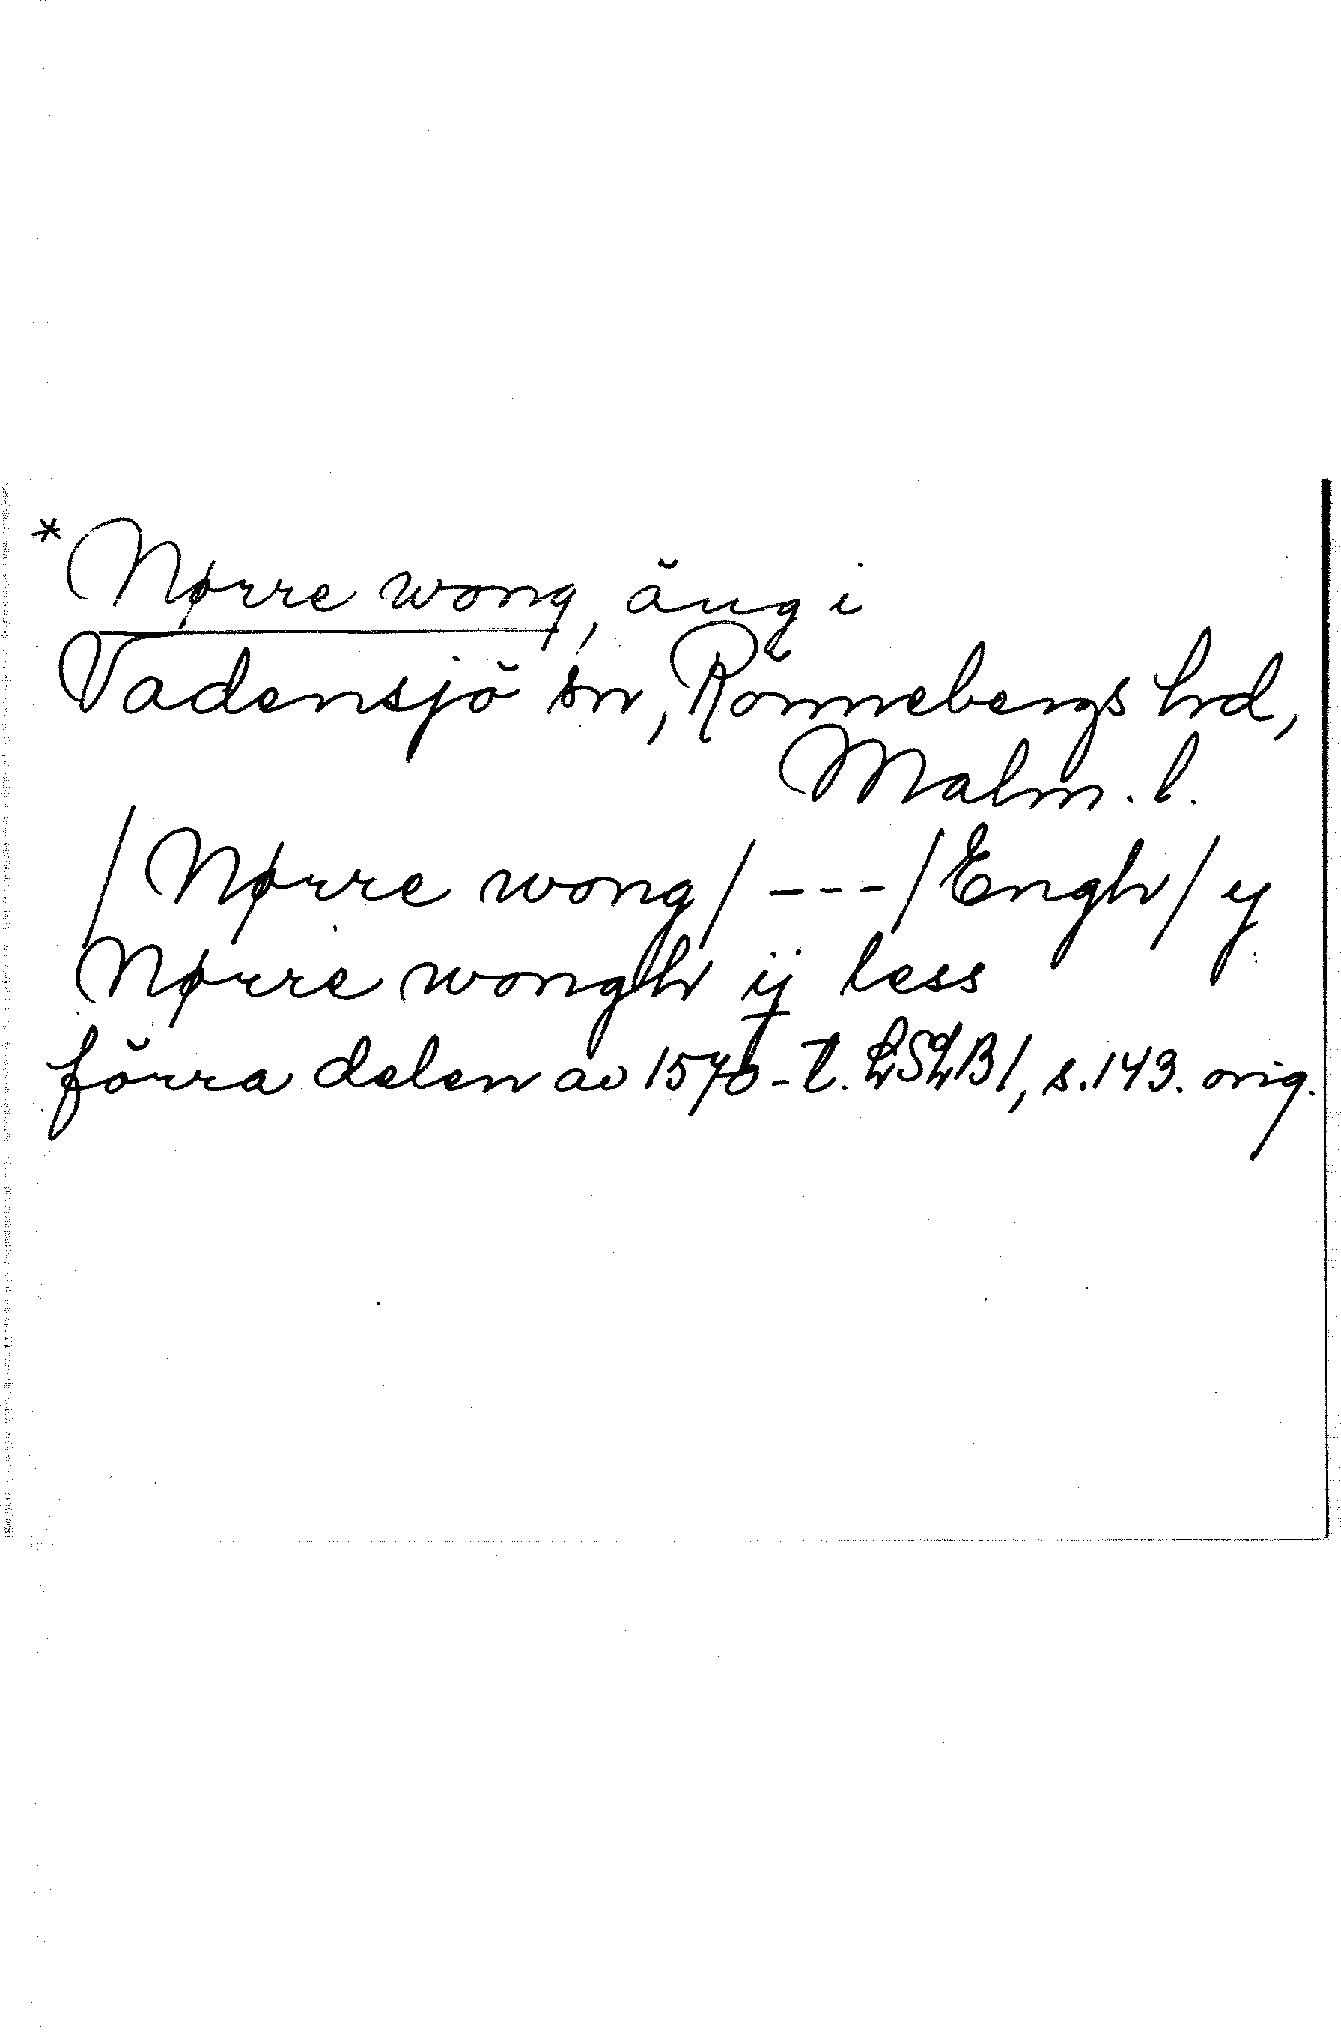 *Nørre wong, äng i
Vadensjö sn, Rönnebergs hrd,
Malm. l.
/Nørre wong/ --- /Engh/ y
Nørre wongh ij less
förra delen av 1570-t. LSLB1, s.143. orig.